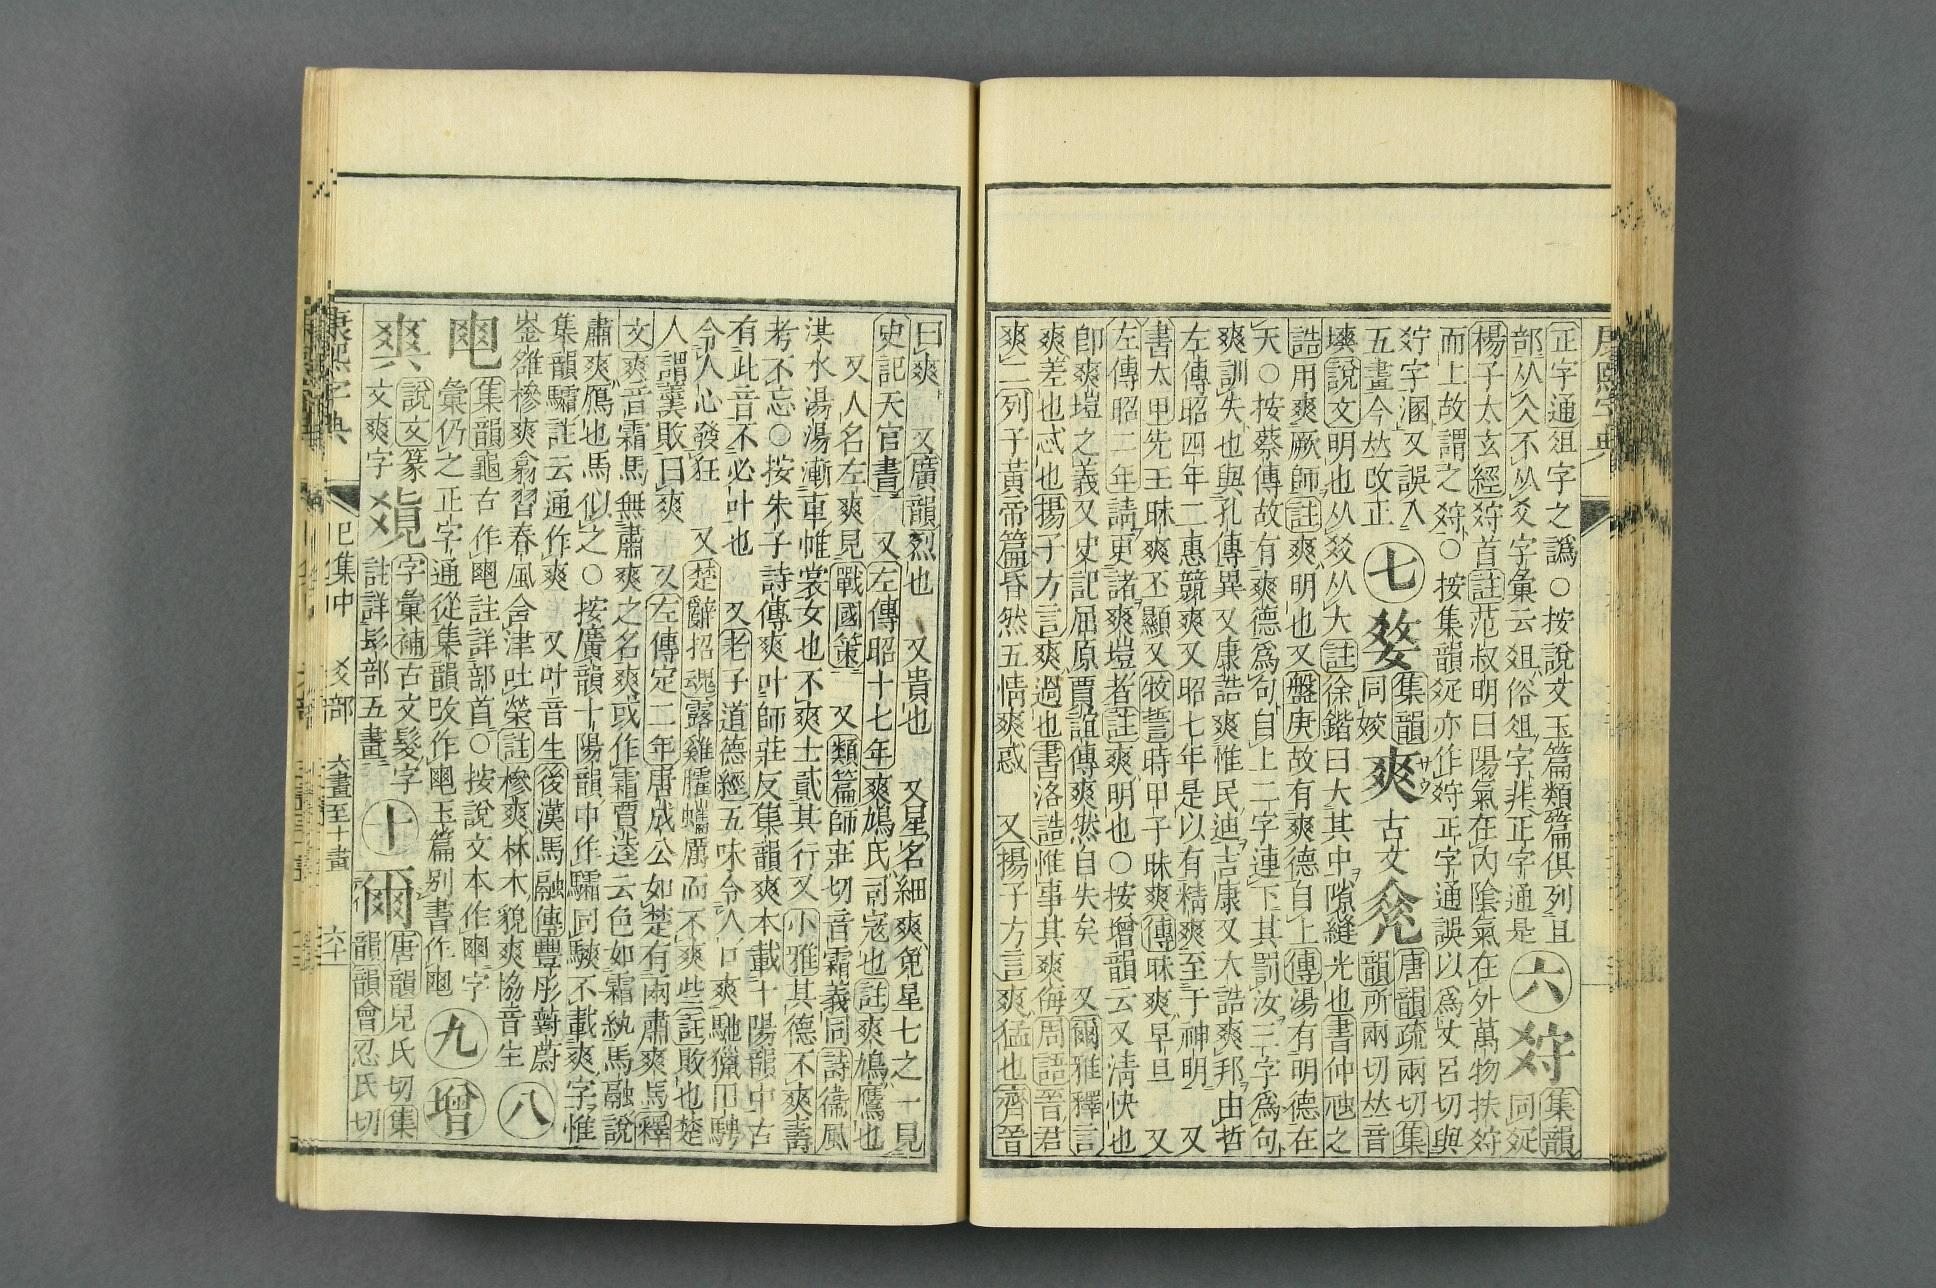 康熙字典
正字通俎字之譌○按說文玉篇類篇俱列且
部从仌不从爻字彙云爼俗俎字非正字通是
六
集韻
同
楊子太玄經㸚首註范叔明曰陽氣在內陰氣在外萬物扶
而上故謂之○按集韻亦作正字通誤以爲文呂切與
字溷又誤入
五畫今𠀤改正
七
集韻
同㛐
爽
サウ
古文
唐韻疏兩切集
韻所兩切𠀤音
塽說文明也从㸚从大註徐鍇曰大其中隙縫光也書仲虺之
誥用爽厥師註爽明也又盤庚故有爽德自上傳湯有明德在
天○按蔡傳故有爽德爲句自上二字連下其罰汝三字爲句
爽訓失也與孔傳異又康誥爽惟民迪吉康又大誥爽邦由哲
左傳昭四年二惠競爽又昭七年是以有精爽至于神明又
書太甲先王昧爽丕顯又牧誓時甲子昧爽傳昧爽早旦又
左傳昭二年請更諸爽塏者註爽明也○按增韻云又淸快也
卽爽塏之義又史記屈原賈誼傳爽然自失矣又爾雅釋言
爽差也忒也揚子方言爽過也書洛誥惟事其爽侮周語晉君
爽二列子黃帝篇昏然五情爽惑又揚子方言爽猛也齊晉
曰爽又廣韻烈也又貴也又星名細爽兔星七之一見
史記天官書又左傳昭十七年爽鳩氏司寇也註爽鳩鷹也
又人名左爽見戰國策又類篇師莊切音霜義同詩衞風
淇水湯湯漸車帷裳女也不爽士貳其行又小雅其德不爽壽
考不忘○按朱子詩傳爽叶師莊反集韻爽本載十陽韻中古
有此音不必叶也又老子道德經五味令人口爽馳獵田騁
令人心發狂又楚辭招魂露雞臛蠵厲而不爽些註敗也楚
人謂羹敗曰爽又左傳定二年唐成公如楚有兩肅爽馬釋
文爽音霜馬無肅爽之名爽或作霜賈逵云色如霜紈馬融說
肅爽鴈也馬似之○按廣韻十陽韻中作驦同騻不載爽字惟
集韻驦註云通作爽又叶音生後漢馬融傳豐彤對蔚
崟䧪槮爽翕習春風含津吐榮註槮爽林木貌爽協音生
八
集韻龜古作註詳部首○按說文本作字
彙仍之正字通從集韻攺作玉篇別書作
九
增
說文篆
文爽字
字彙補古文髮字
註詳髟部五畫
十
爾
唐韻兒氏切集
韻韻會忍氏切
康熙字典
巳集中
爻部
六畫至十畫
六十